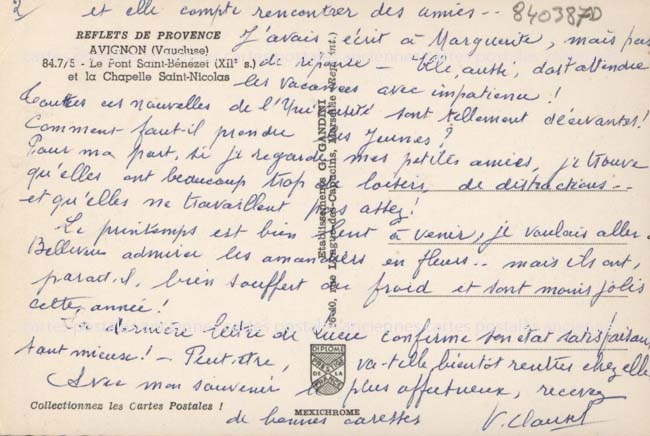 2/ et elle compte rencontrer des amies --
840387D
REFLETS DE PROVENCE
AVIGNON (Vaucluse)
84.7/5 - Le Pont Saint-Bénezet (XIIe s.)
et la Chapelle Saint-Nicolas
J'avais écrit à Marguerite, mais pas
de réponse - Elle, aussi, doit attendre
les vacances avec impatience !
Toutes ces nouvelles de l'Université sont tellement décevantes!
Comment faut-il prendre les Jeunes ?
Pour ma part, si je regarde mes petites amies, je trouve
qu'elles ont beaucoup trop de loisirs, de distractions --
et qu'elles ne travaillent pas assez!
Le printemps est bien lent à venir, je voulais aller à
Bellevue admirer les amandiers en fleurs -- mais ils ont,
paraît-il, bien souffert du froid et sont moins jolis
cette année!
La dernière lettre de confirme son état satisfaisant,
tant mieux ! - Peut-être, va-t-elle bientôt rentrer chez elle
Avec mon souvenir le plus affectueux, recevez
de bonnes caresses
Etablissements G. GANDINI
36-40, rue Longue-des-Capucins, Marseille (Rep. int.)
DIPLOME
DE LA
MEXICHROME
Collectionnez les Cartes Postales !